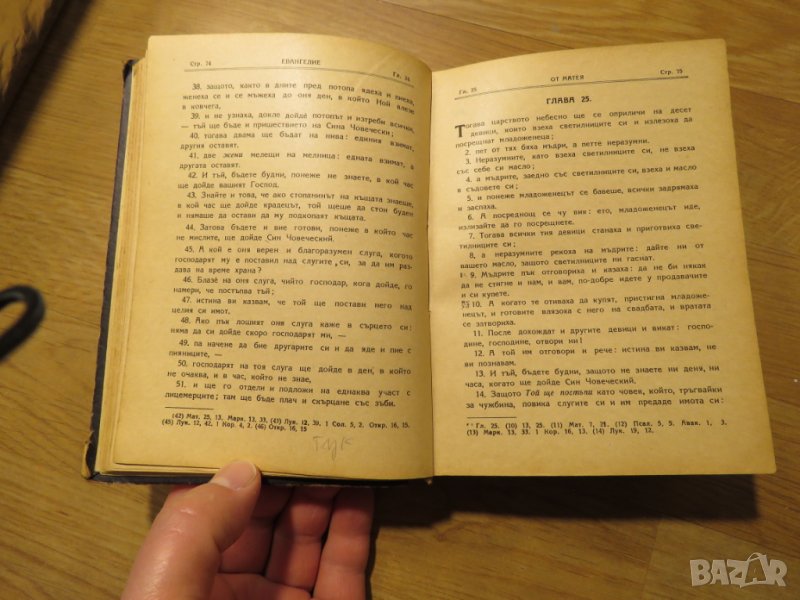 Стр. 74 ЕВАНГЕЛИЕ Гл. 24
38. защото, както в дните пред потопа ядеха и пиеха,
женеха се и се мъжеха до оня ден, в който Ной влезе
в ковчега,
39. и не узнаха, докле дойде потопът и изтреби всички,
— тъй ще бъде и пришествието на Сина Човечески;
40. тогава двама ще бъдат на нива: единия вземат,
другия оставят.
41. две жени мелещи на мелница: едната взимат, а
другата оставят.
42. И тъй, бъдете будни, понеже не знаете, в кой час
ще дойде вашият Господ.
43. Знайте и това, че ако стопанинът на къщата знаеше,
в кой час ще дойде крадецът, той щеше да стои буден
и нямаше да остави да му подкопаят къщата.
44. Затова бъдете и вие готови, понеже в който час
не мислите, ще дойде Син Човеческий.
45. А кой е оня верен и благоразумен слуга, когото
господарят му е поставил над слугите си, за да им раз-
дава на време храна?
46. Блазѐ на оня слуга, чийто господар, кога дойде, го
намери, че постъпва тъй;
47. истина ви казвам, че той ще постави него над
целия си имот.
48. Ако пък лошият оня слуга каже в сърцето си:
няма да си дойде скоро господарят ми, —
49. па начене да бие другарите си и да яде и пие с
пияниците, —
50. господарят на тоя слуга ще дойде в ден, в който
не очаква, и в час, който не знае,
51. и ще го отдели и подложи на еднаква участ с
лицемерците; там ще бъде плач и скърцане със зъби.
(42) Мат. 25, 13, Марк. 13, 33, (43) Лук. 12, 39, 1 Сол. 5, 2. Откр. 16, 15.
(45) Лук. 12, 42. 1 Кор. 4, 2. (46) Откр. 16, 15
Тук
Гл. 25 ОТ МАТЕЯ Стр. 75
ГЛАВА 25.
Тогава царството небесно ще се оприличи на десет
девици, които взеха светилниците си и излязоха да
посрещнат младоженеца;
2. пет от тях бяха мъдри, а петте неразумни.
3. Неразумните, като взеха светилниците си, не взеха
със себе си масло;
4. а мъдрите, заедно със светилниците си, взеха и масло
в съдовете си;
5. и понеже младоженецът се бавеше, всички задрямаха
и заспаха.
6. А посреднощ се чу вик: ето, младоженецът иде,
излизайте да го посрещнете.
7. Тогава всички тия девици станаха и приготвиха све-
тилниците си;
8. а неразумните рекоха на мъдрите: дайте ни от
вашето масло, защото светилниците ни гаснат.
9. Мъдрите пък отговориха и казаха: да не би някак
да не стигне и нам, и вам, по-добре идете у продавачите
и си купете.
10. А когато те отиваха да купят, пристигна младоже-
нецът, и готовите влязоха с него на свадбата, и вратата
се затвориха.
11. После дохождат и другите девици и викат: госпо-
дине, господине, отвори ни!
12. А той им отговори и рече: истина ви казвам, не
ви познавам.
13. И тъй, бъдете будни, защото не знаете ни деня, ни
часа, когато ще дойде Син Човеческий.
14. Защото Той ще постъпи като човек, който, тръгвайки
за чужбина, повика слугите си и им предаде имота си:
Гл. 25. (10) 13, 25. (11) Мат. 7, 21. (12) Псал. 5, 5. Авак. 1, 3.
(13) Марк. 13, 33. 1 Кор. 16, 13. (14) Лук. 19, 12.
BAZAR